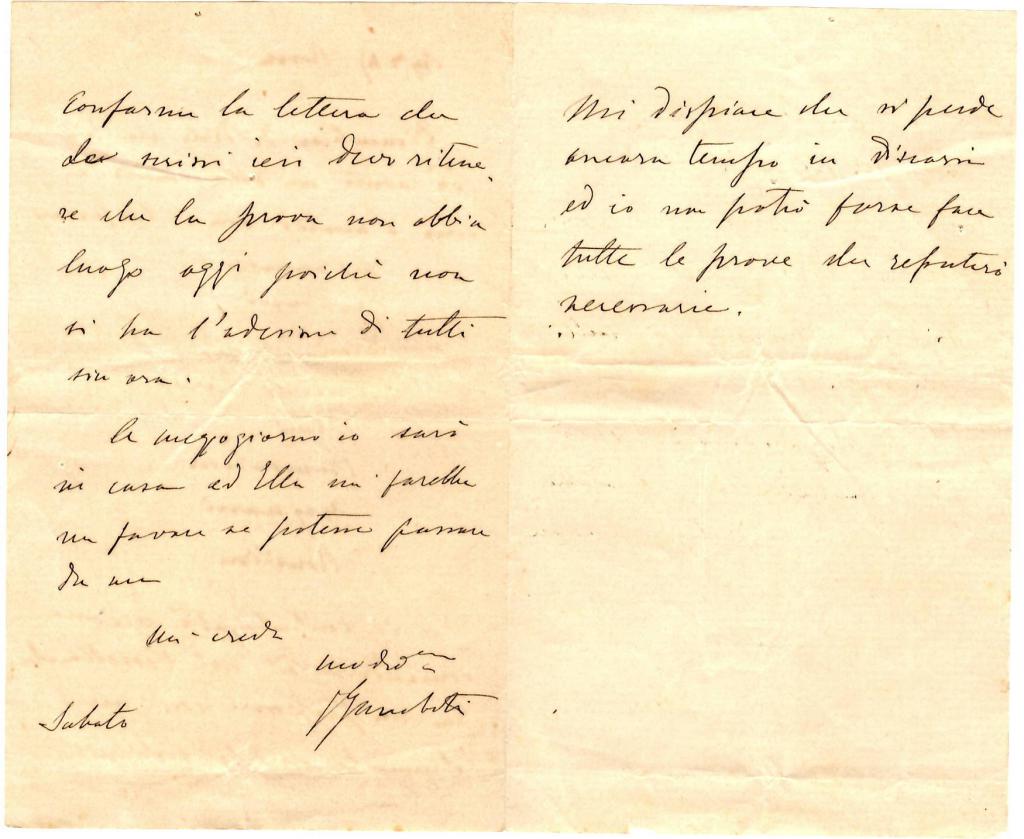 Conforme la lettera che
Le scrissi ieri devo ritene-
re che la prova non abbia
luogo oggi poichè non
si ha l'adesione di tutti
sin ora.
A mezzogiorno io sarò
in casa ed Ella mi farebbe
un favore se potesse passare
da me
Mi creda
Sabato
Mi dispiace che si perde
ancora tempo in discorsi
ed io non potrò forse fare
tutte le prove che reputerò
necessarie.